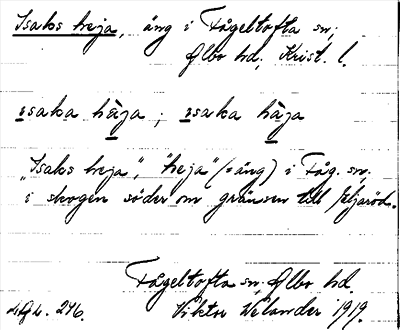 Isaks heja, äng i Fågeltofta sn;
Albo hd; Krist. l.
ısaka hàja ; ısaka hàja
„Isaks heja”, "heja" (= äng) i Fåg. sn;
i skogen söder om gränsen till Eljaröd.
Fågeltofta sn; Albo hd.
Viktor Welander 1919.